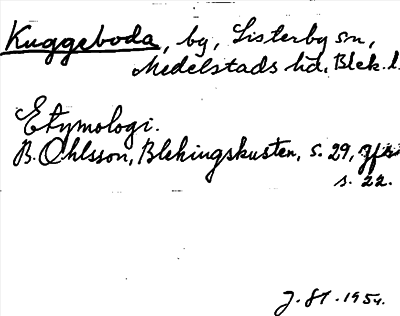 Kuggeboda, by, Listerby sn,
Medelstads hd, Blek. l.
Etymologi.
B. Ohlsson, Blekingskusten, s. 29, jfr
s. 22.
1954.